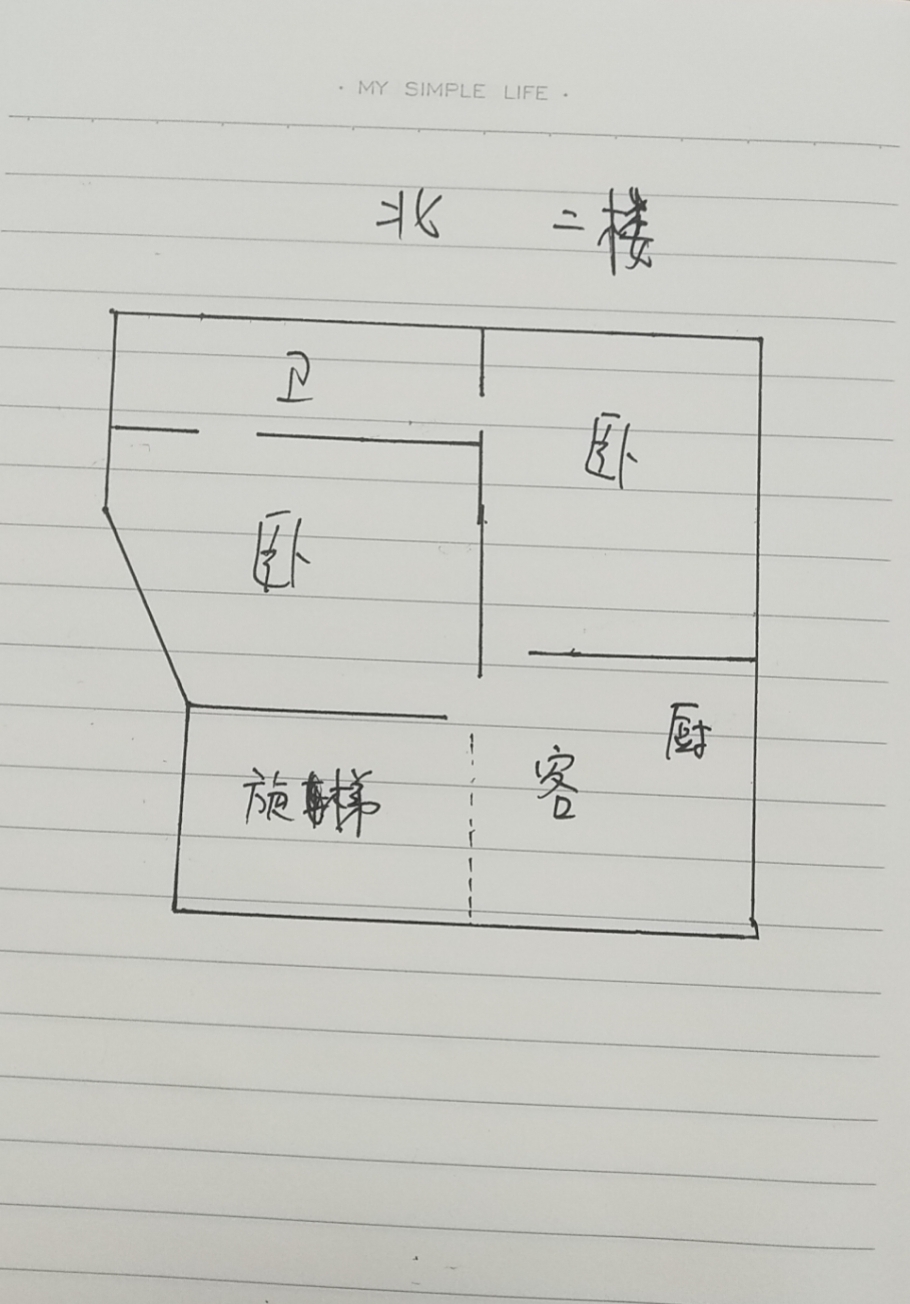 · MY SIMPLE LIFE ·
北 二楼
卫
卧
卧
厨
客
旋梯